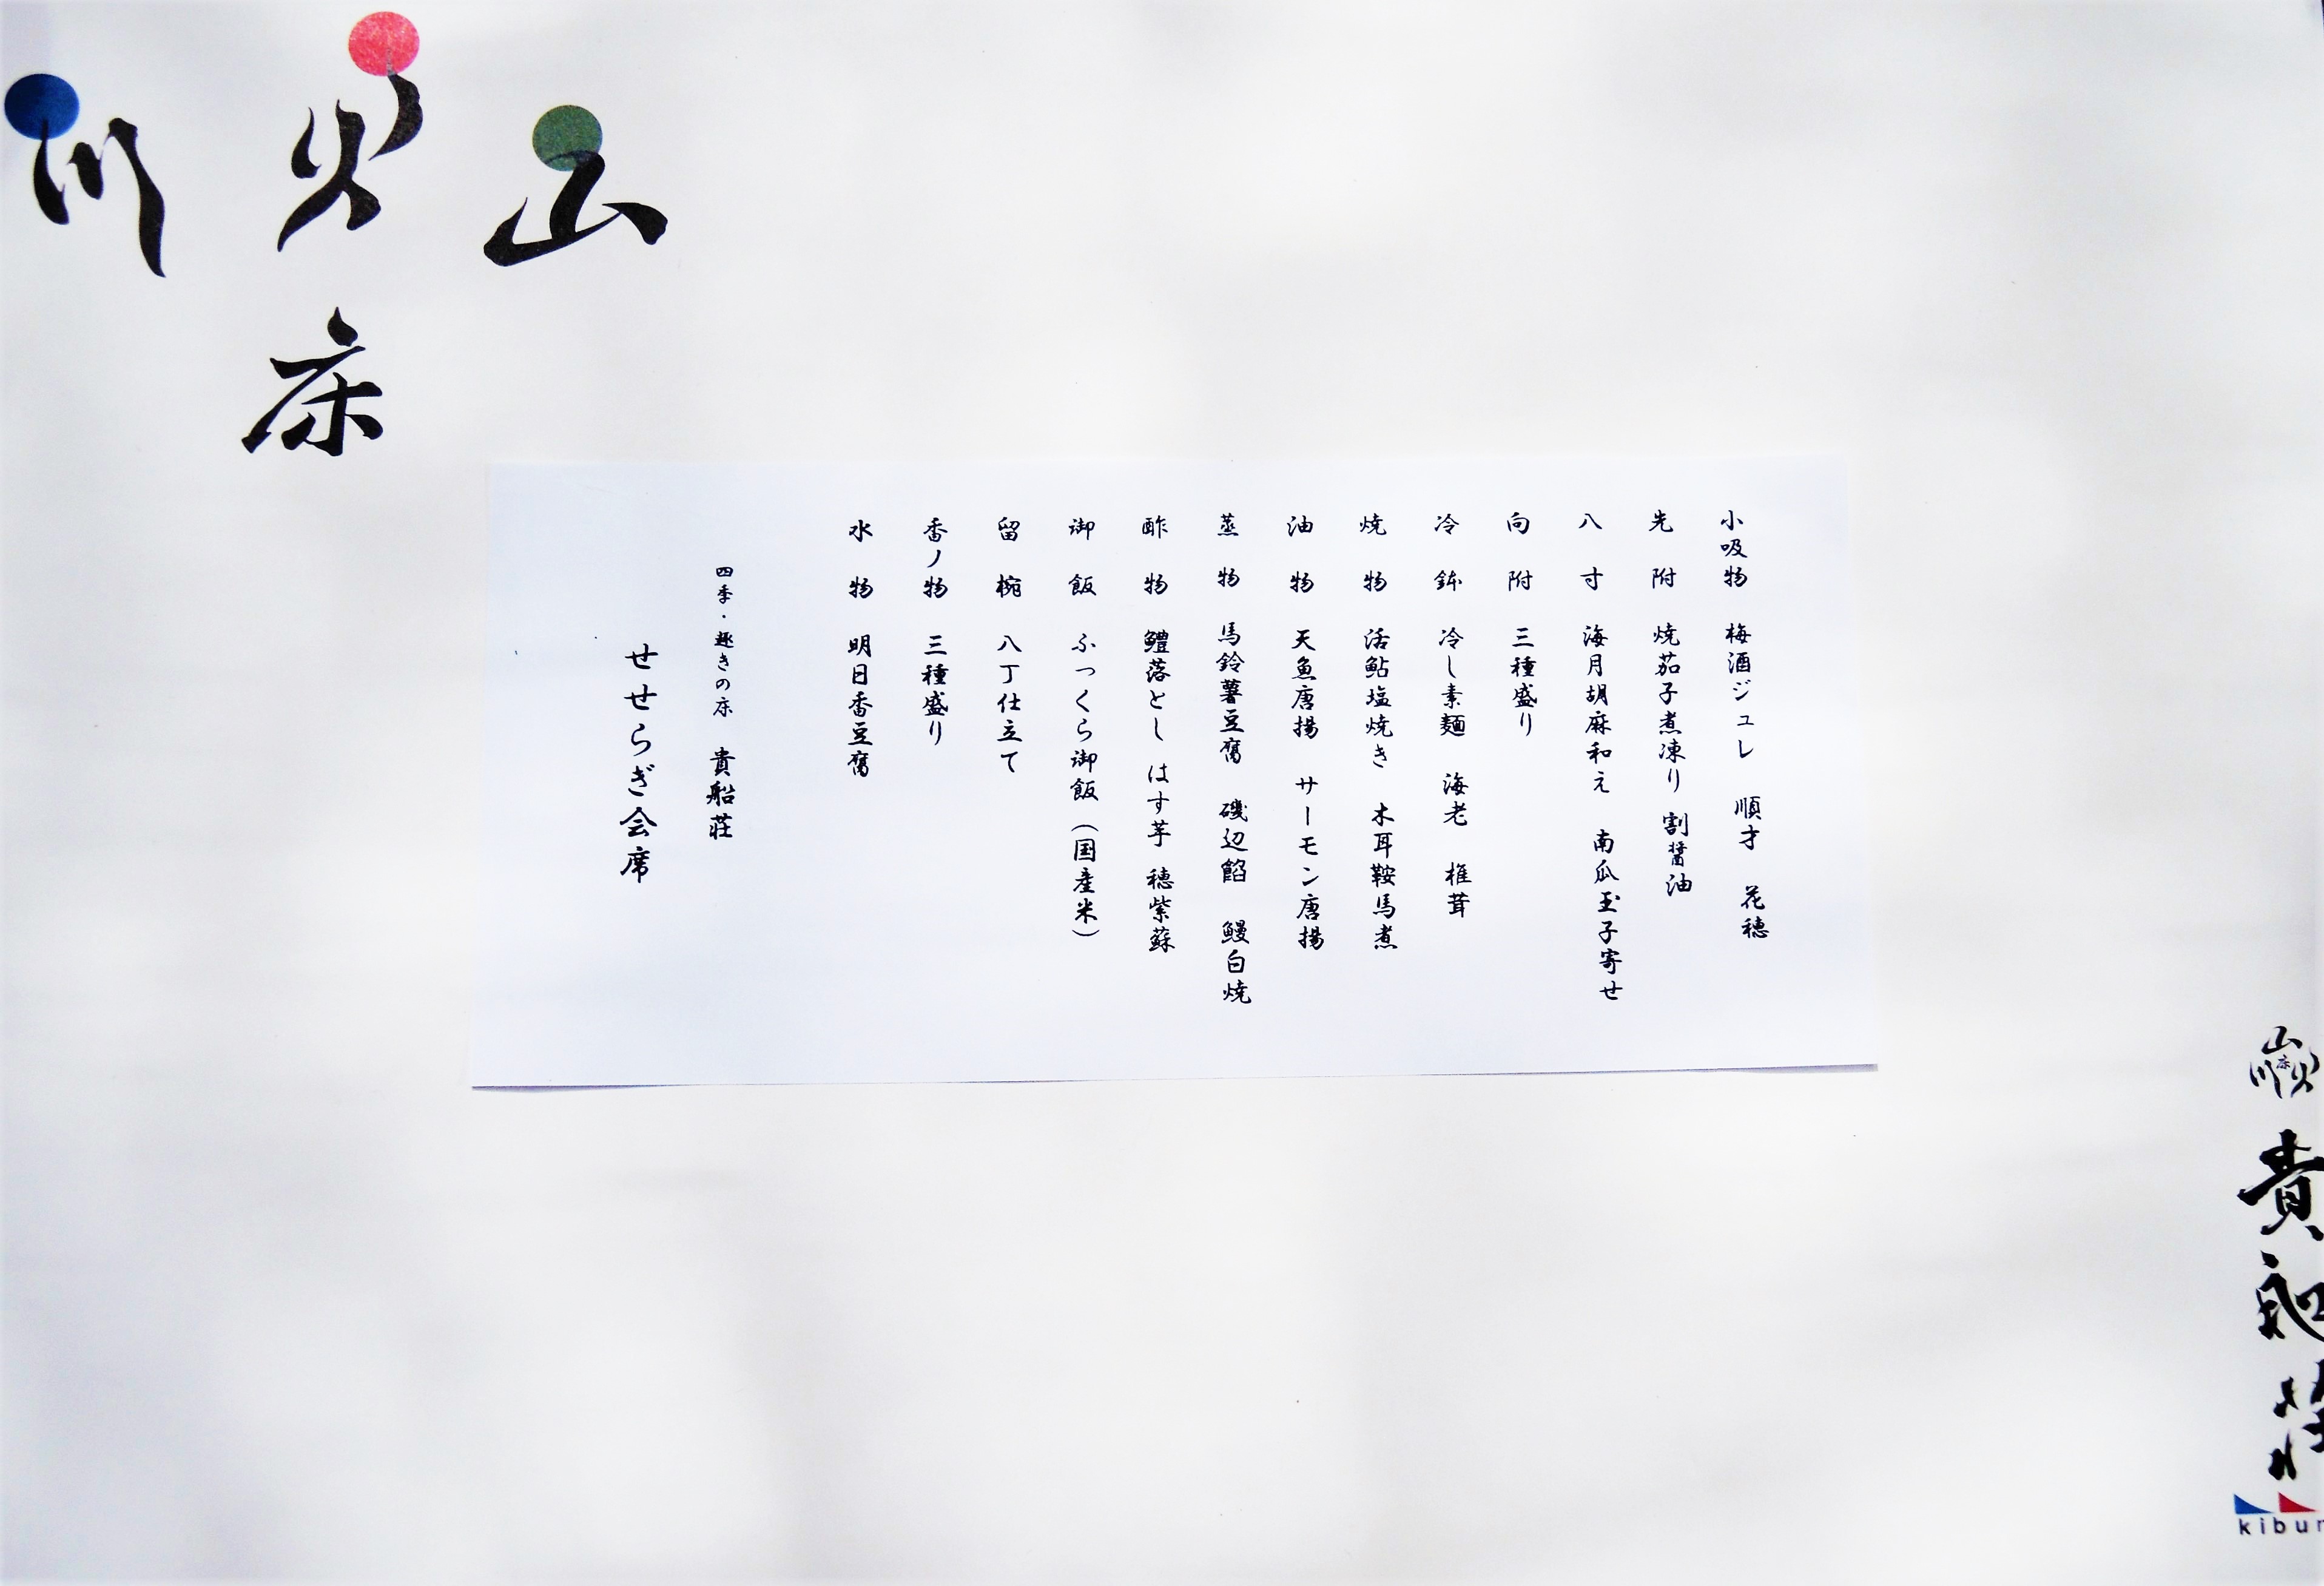 山
火
川
床
小吸物 梅酒ジュレ 順才 花穂
先附 焼茄子煮凍り 割醤油
八寸 海月胡麻和え 南瓜玉子寄せ
向附 三種盛り
冷鉢 冷し素麺 海老 椎茸
焼物 活鮎塩焼き 木耳鞍馬煮
油物 天魚唐揚 サーモン唐揚
蒸物 馬鈴薯豆腐 磯辺餡 鰻白焼
酢物 鱧落とし はす芋 穂紫蘇
御飯 ふっくら御飯(国産米)
留椀 八丁仕立て
香ノ物 三種盛り
水物 明日香豆腐
四季・趣きの床 貴船荘
せせらぎ会席
山
川床火
貴船荘
kibun